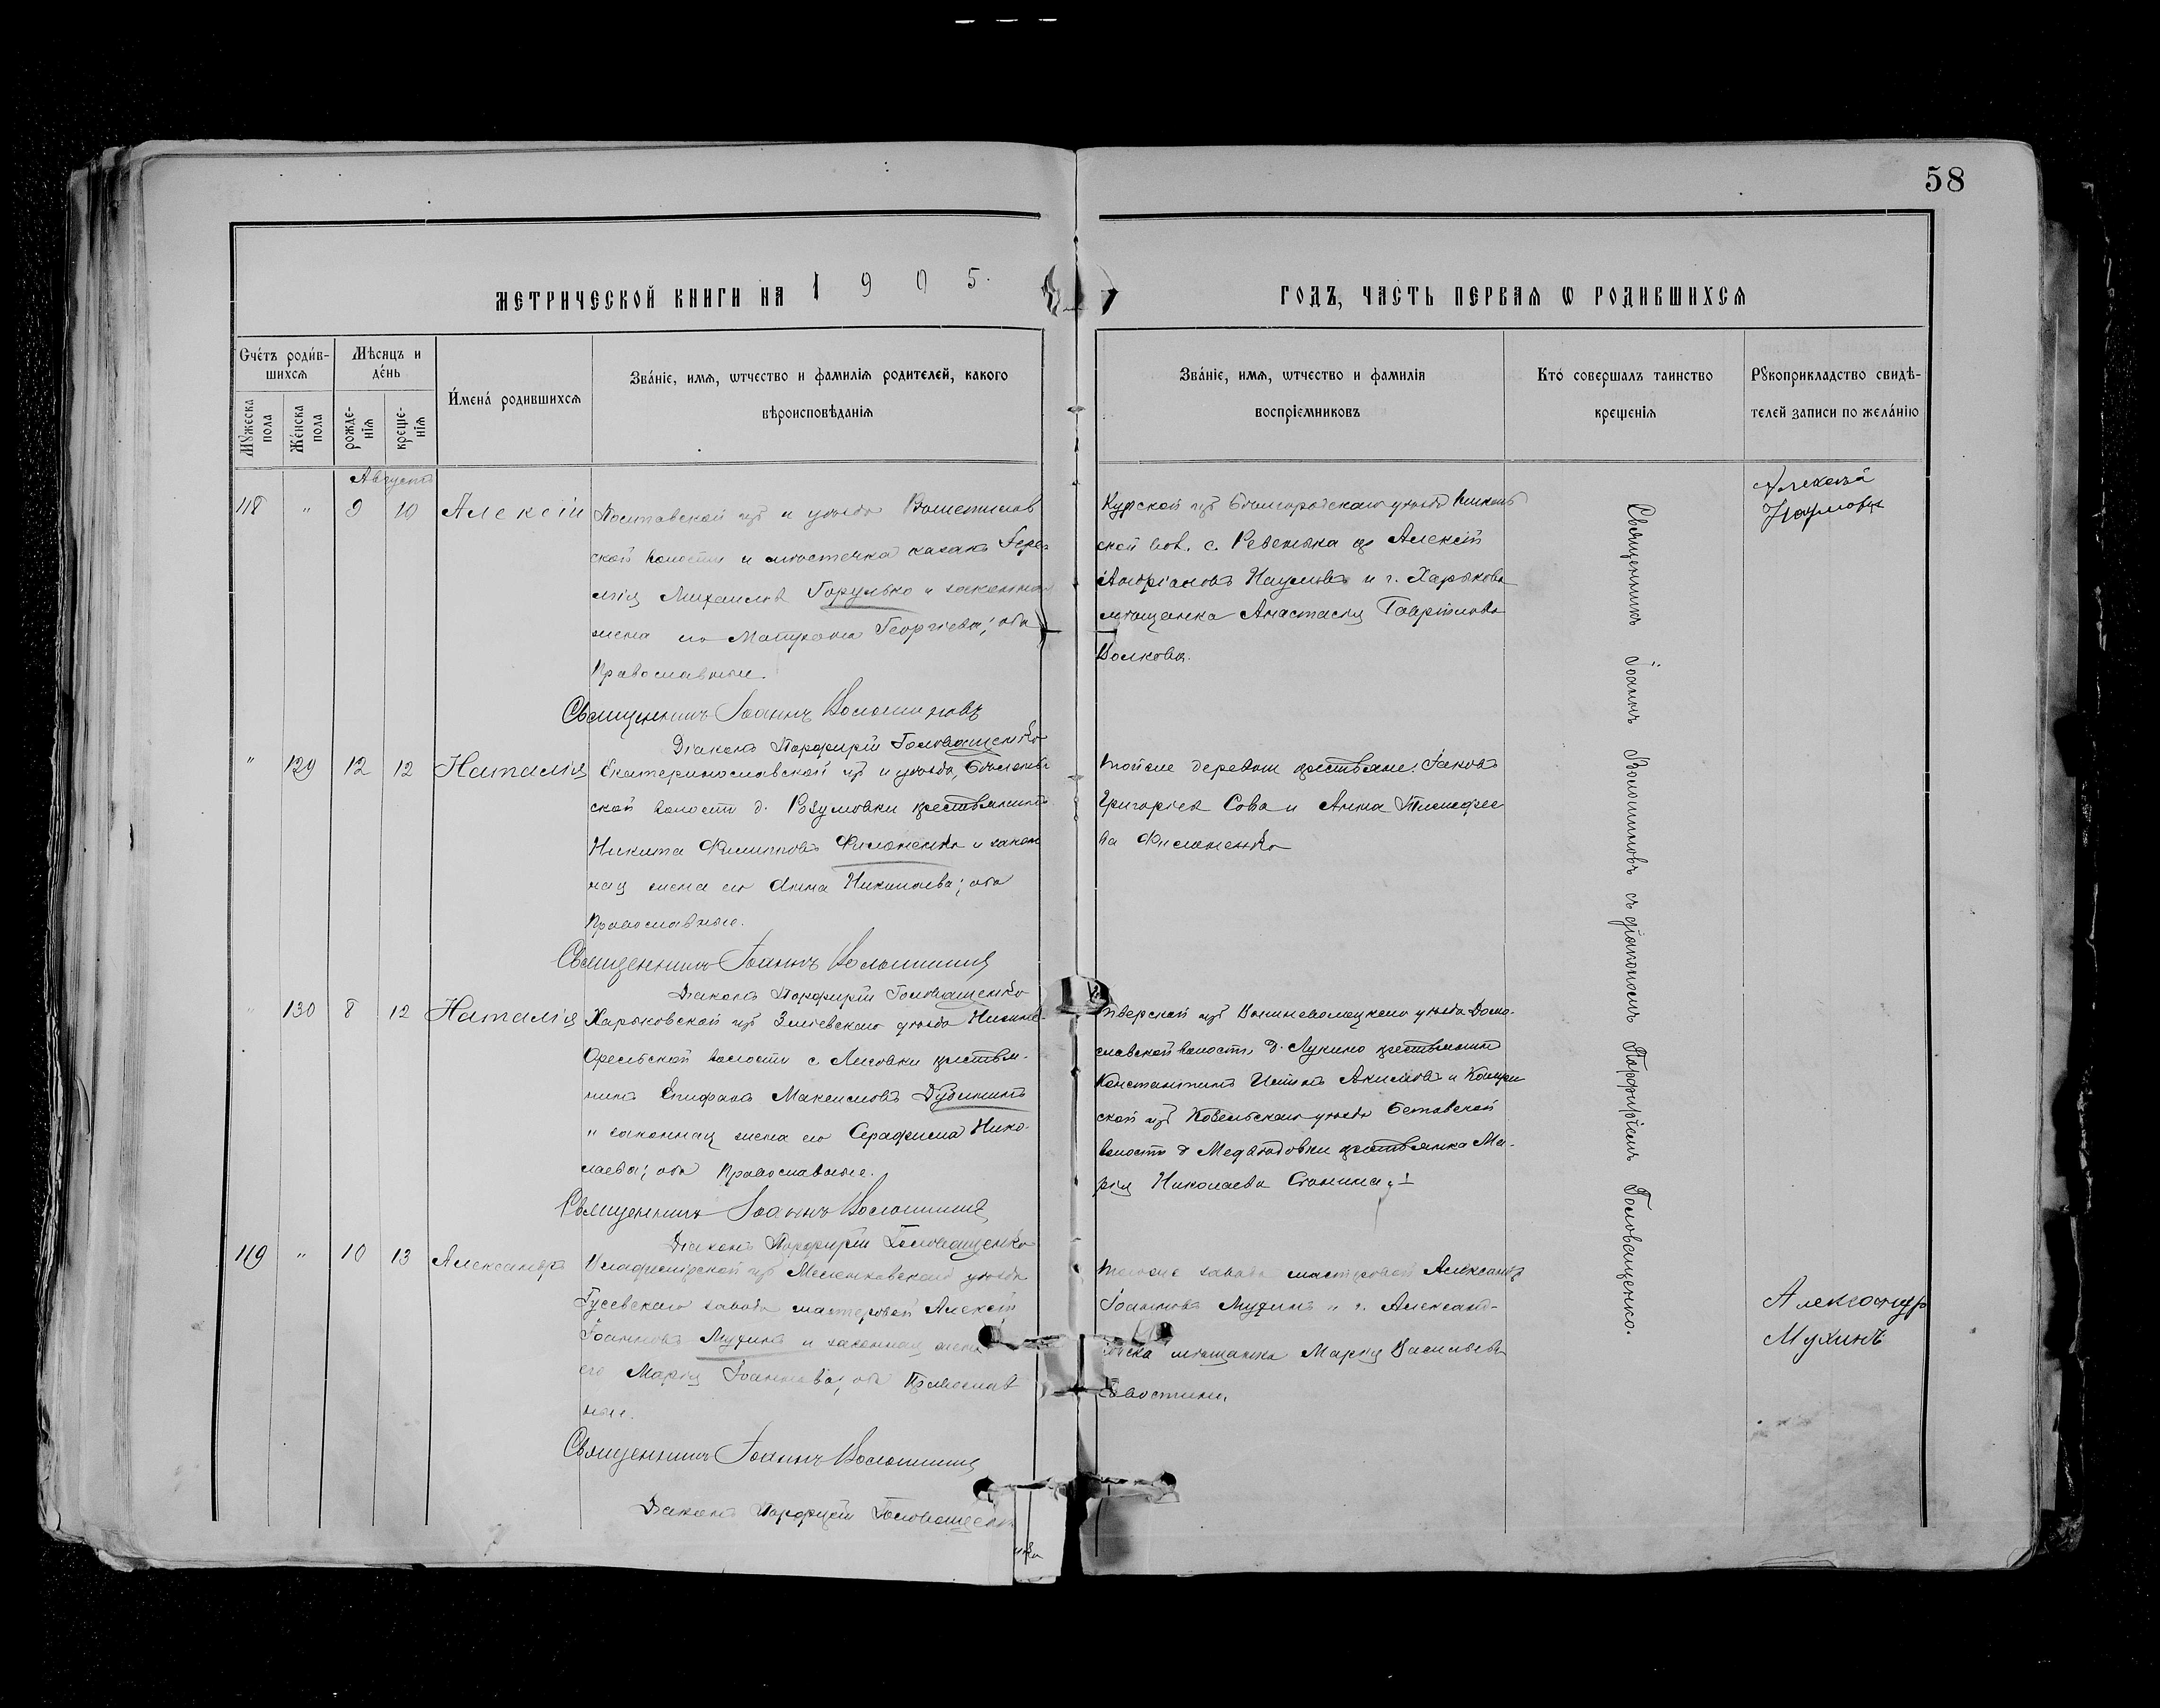 58
МЕТРИЧЕСКОЙ КНИГИ НА 1905.
ГОДЪ, ЧАСТЬ ПЕРВАЯ Ѡ РОДИВШИХСЯ
Счетъ родив-
шихся
Мѣсяцъ и
день
Мужеска пола
Женска пола
рожде-
нія
креще-
нія
Имена родившихся
Званіе, имя, ѡтчество и фамилія родителей, какого
вѣроисповѣданія
Званіе, имя, ѡтчество и фамилія
воспріемниковъ
Кто совершалъ таинство
крещенія
Рукоприкладство свидѣ-
телей записи по желанію
Августа
118 " 9 10 Алексій
Полтавской губ и уѣзда
ской волости и мѣстечка казакъ Іере-
мія Михаиловъ Горулько и законная
жена его Матрона Георгіева; оба
Православные.
Священникъ Іоаннъ Волошиновъ
Діаконъ Порфирій Головащенко
Курской губ Бѣлгородскаго уѣзда
ской вол. с. кр Алексій
Андріановъ Наумовъ и г. Харькова
мѣщанка Анастасія Гавріилова
Волкова.
Алексѣй
Наумовъ
" 129 12 12 Наталія
Екатеринославской губ и уѣзда,
ской волости д. Розумовки крестьянинъ
Никита Филипповъ Филоненко и закон
ная жена его Анна Николаева; оба
Православные.
Священникъ Іоаннъ Волошиновъ
Діаконъ Порфирій Головащенко
тойже деревни крестьяне: Іаковъ
Григоріевъ Сова и Анна Тимофее
ва Филоненко
" 130 8 12 Наталія
Харьковской губ Зміевскаго уѣзда Нижне-
Орельской волости с. Лиговки крестьян-
нинъ Епифанъ Максимовъ Дубининъ
и законная жена его Серафима Нико-
лаева; оба Православные.
Священникъ Іоаннъ Волошиновъ
Діаконъ Порфирій Головащенко
Тверской губ Вышневолоцкаго уѣзда
славской волости д. Лукино крестьянинъ
Константинъ Акимовъ и
ской губ уѣзда
волости д крестьянка Ма-
рія Николаева
119 " 10 13 Александръ
Владимірской губ Меленковскаго уѣзда
Гусевскаго завода мастеровой Алексій
Іоанновъ Мухинъ и законная жена
его Марія Іоаннова; оба Православ
ные.
Священникъ Іоаннъ Волошиновъ
Діаконъ Порфирій Головащен
ко
тогоже завода мастеровой Александръ
Іоанновъ Мухинъ и г. Александ-
мѣщанка Марія Васильева
Александръ
Мухинъ
Священникъ Іоаннъ Волошиновъ съ діакономъ Порфиріемъ Головащенко.